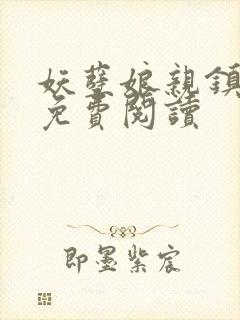 妖孽娘親鎮
免費閱讀
即墨紫宸